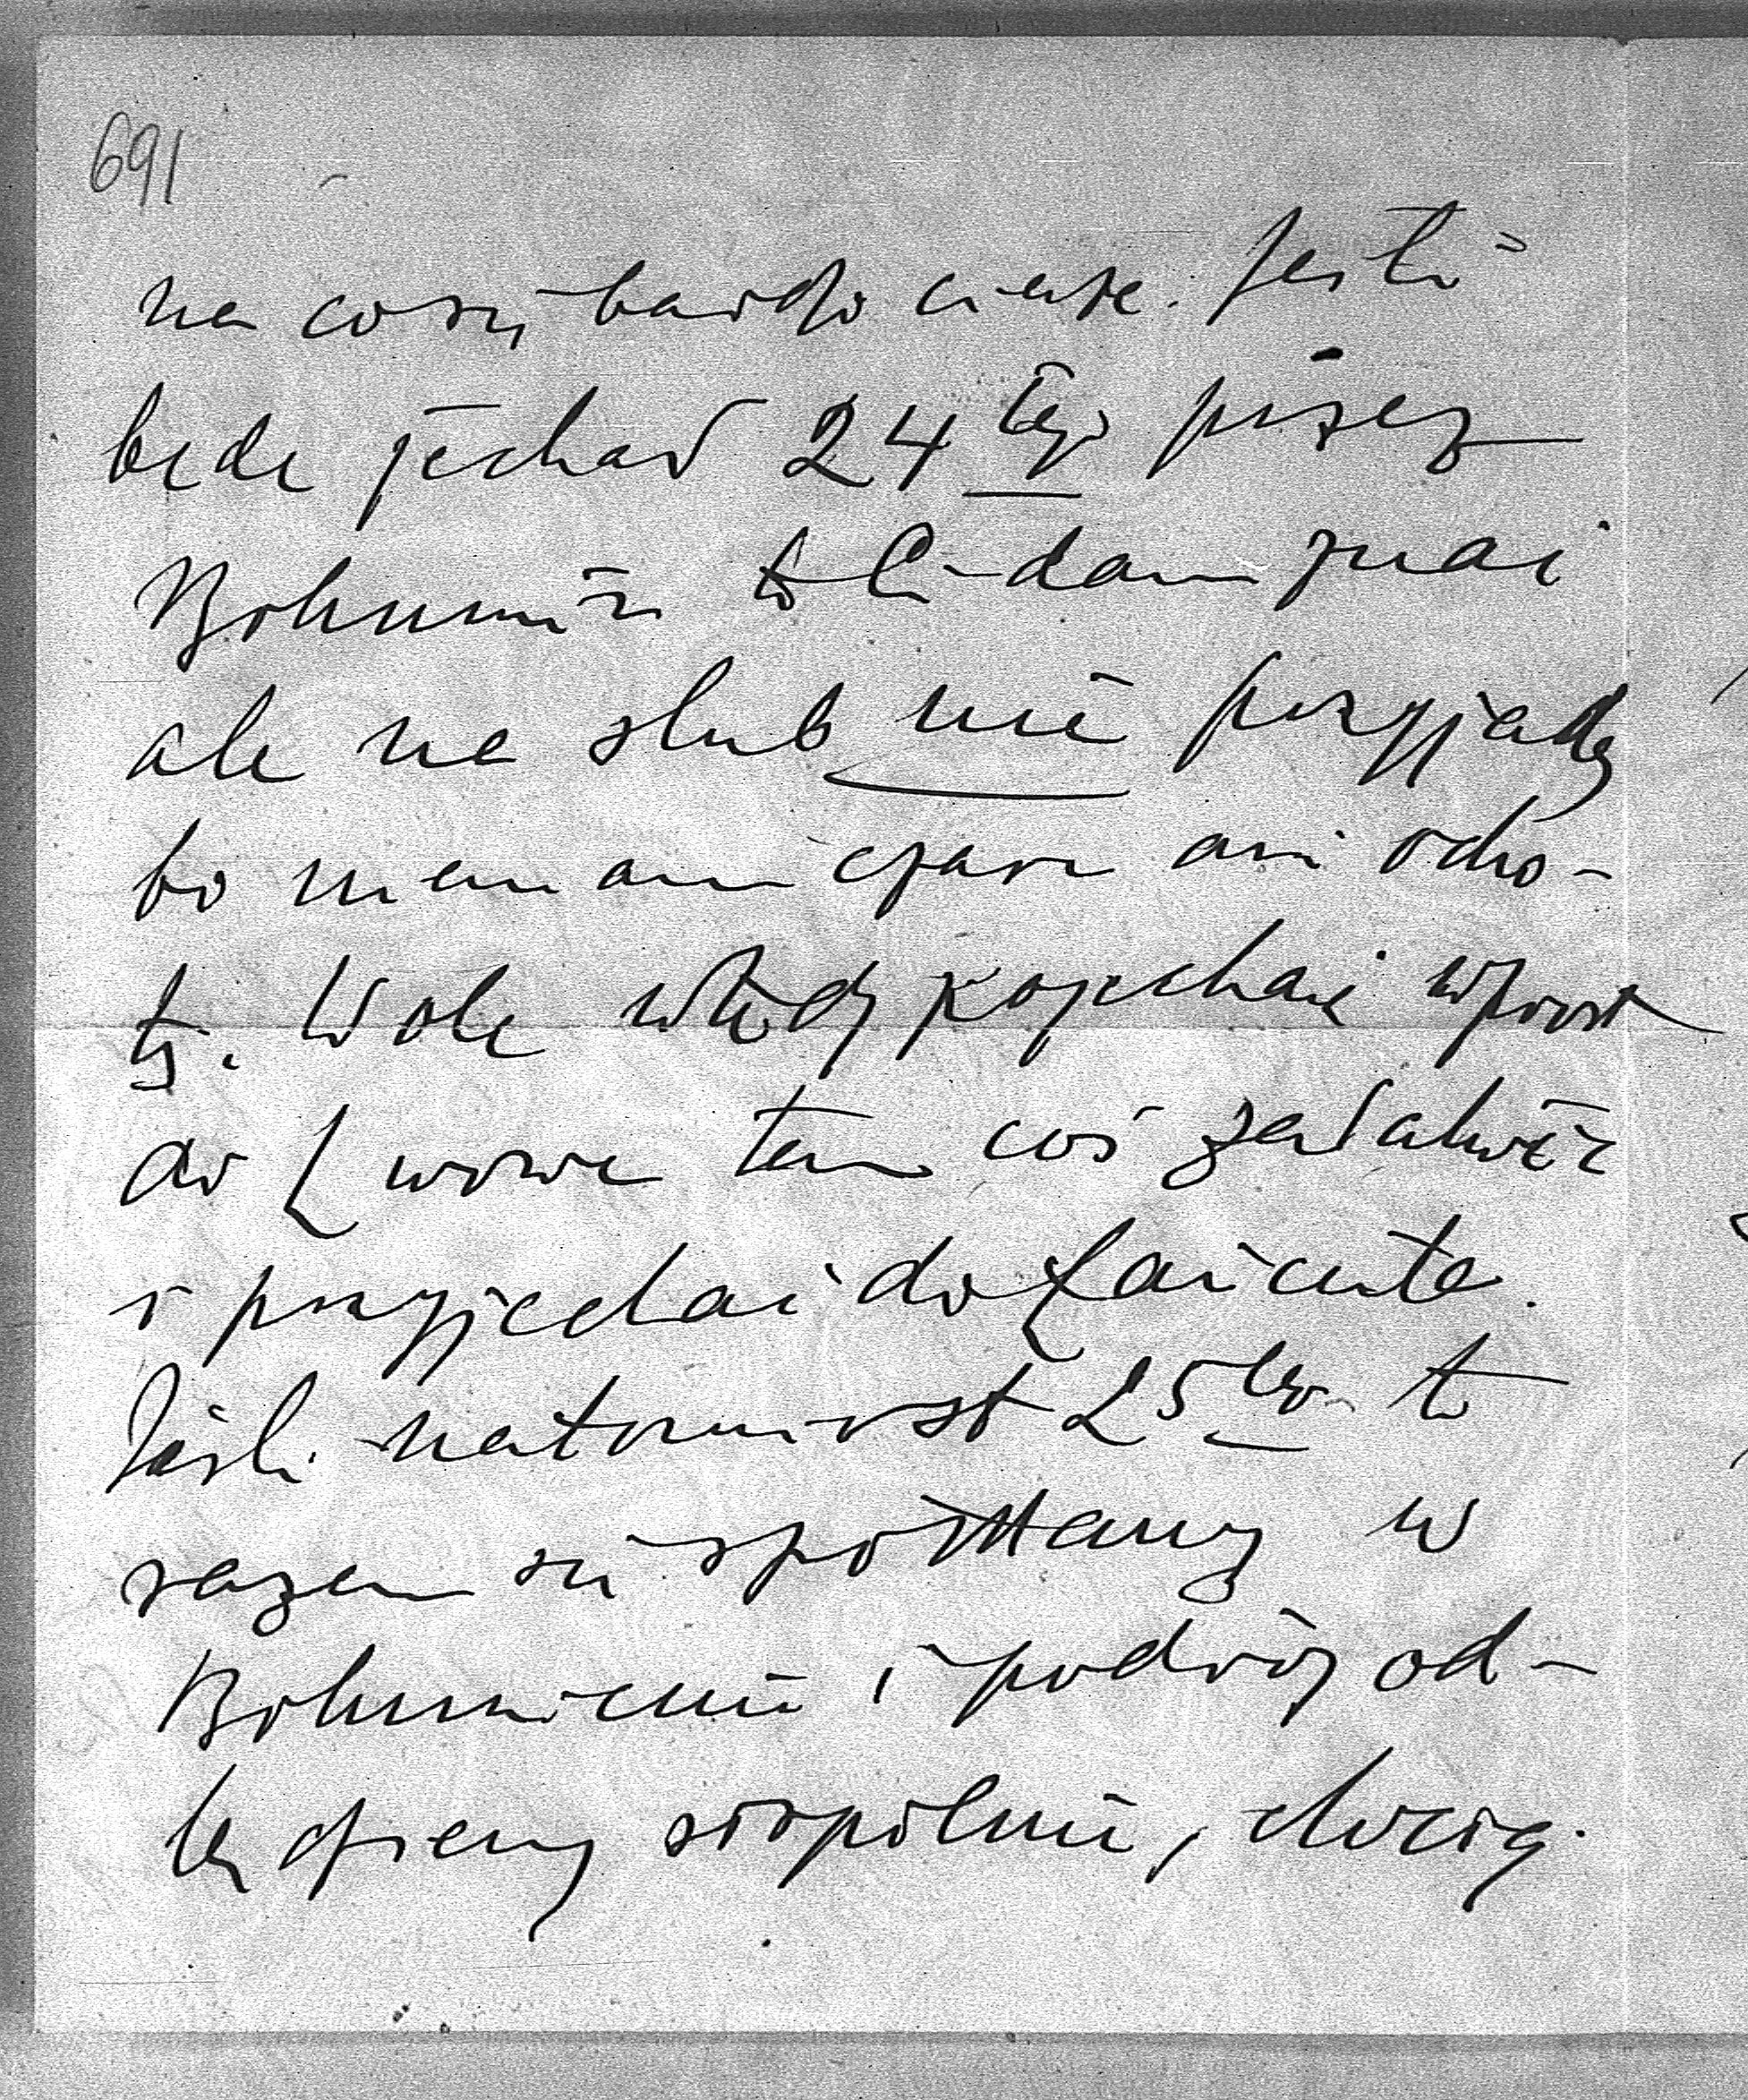 691
na co się bardzo cieszę. Jeśli
będę jechał 24tego przez
Bohumin to Ci dam znać
ale na ślub nie przyjadę
bo niemam czasu ani ocho-
ty. Wolę wtedy pojechać wprost
do Lwowa tam coś załatwić
i przyjechać do Łańcuta.
Jeśli natomiast 25go to
razem się spotkamy w
Bohuminie i podróż od-
będziemy wspólnie, chociaż